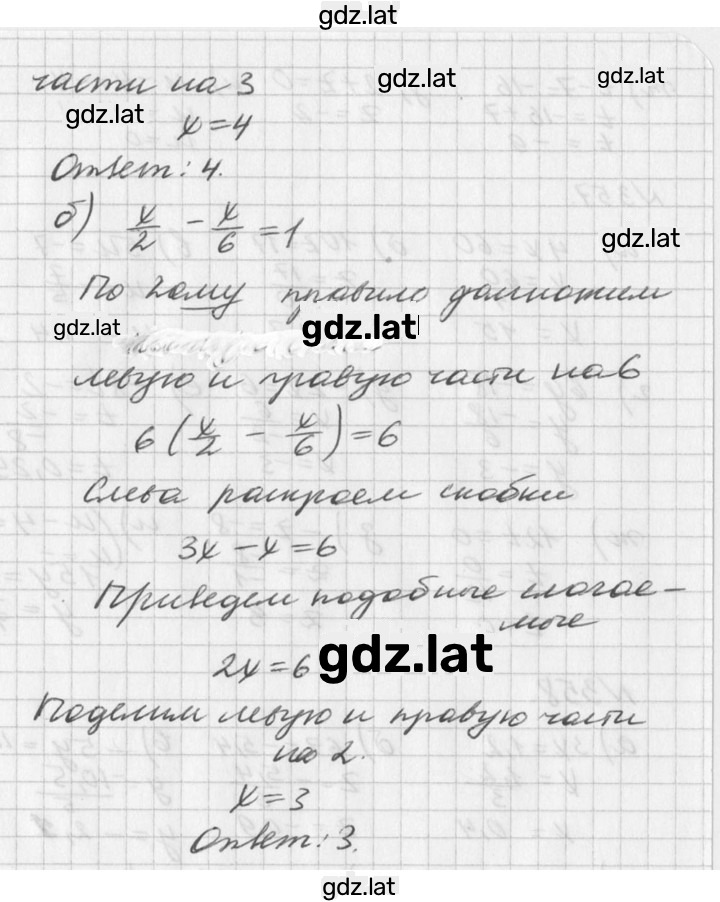 gdz.lat
части на 3
gdz.lat
gdz.lat
gdz.lat
x=4
Ответ: 4.
б) x/2 - x/6 = 1
gdz.lat
По 2ому правило домножим
gdz.lat
gdz.lat
левую и правую части на 6
6(x/2 - x/6)=6
Слева раскроем скобки
3x-x=6
Приведем подобные слагае-
мые
2x=6
gdz.lat
Поделим левую и правую части
на 2.
x=3
Ответ: 3.
gdz.lat